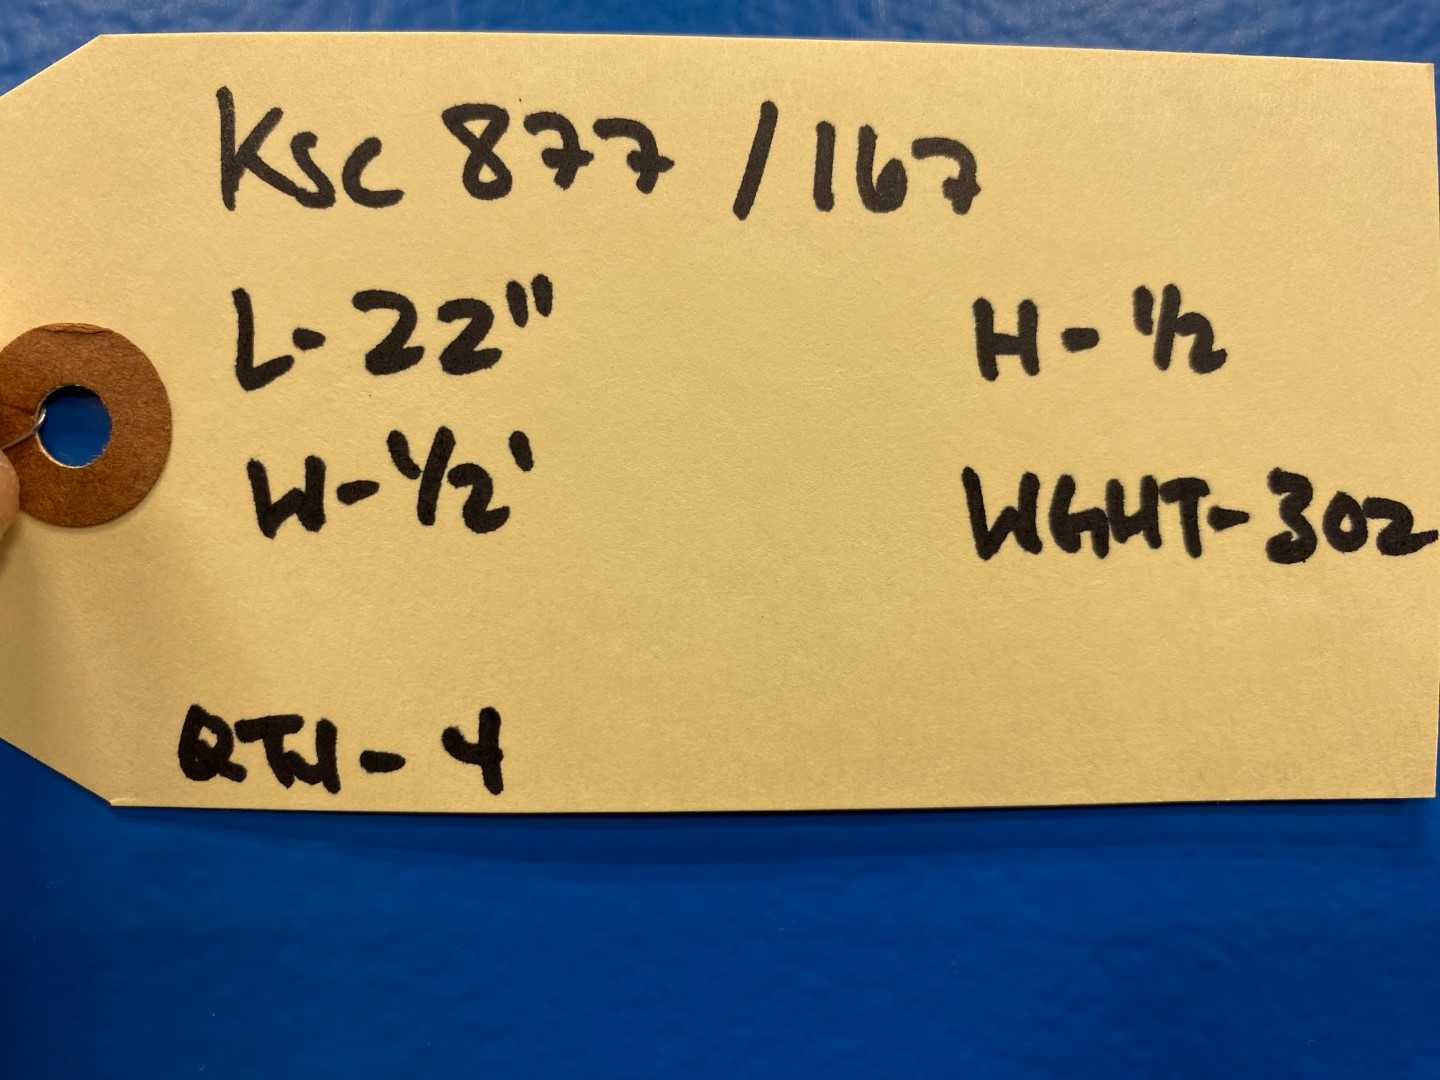 Ksc 877 /167
L- 22" H - 1/2
W - 1/2' WGHT- 3oz
QTY - 4